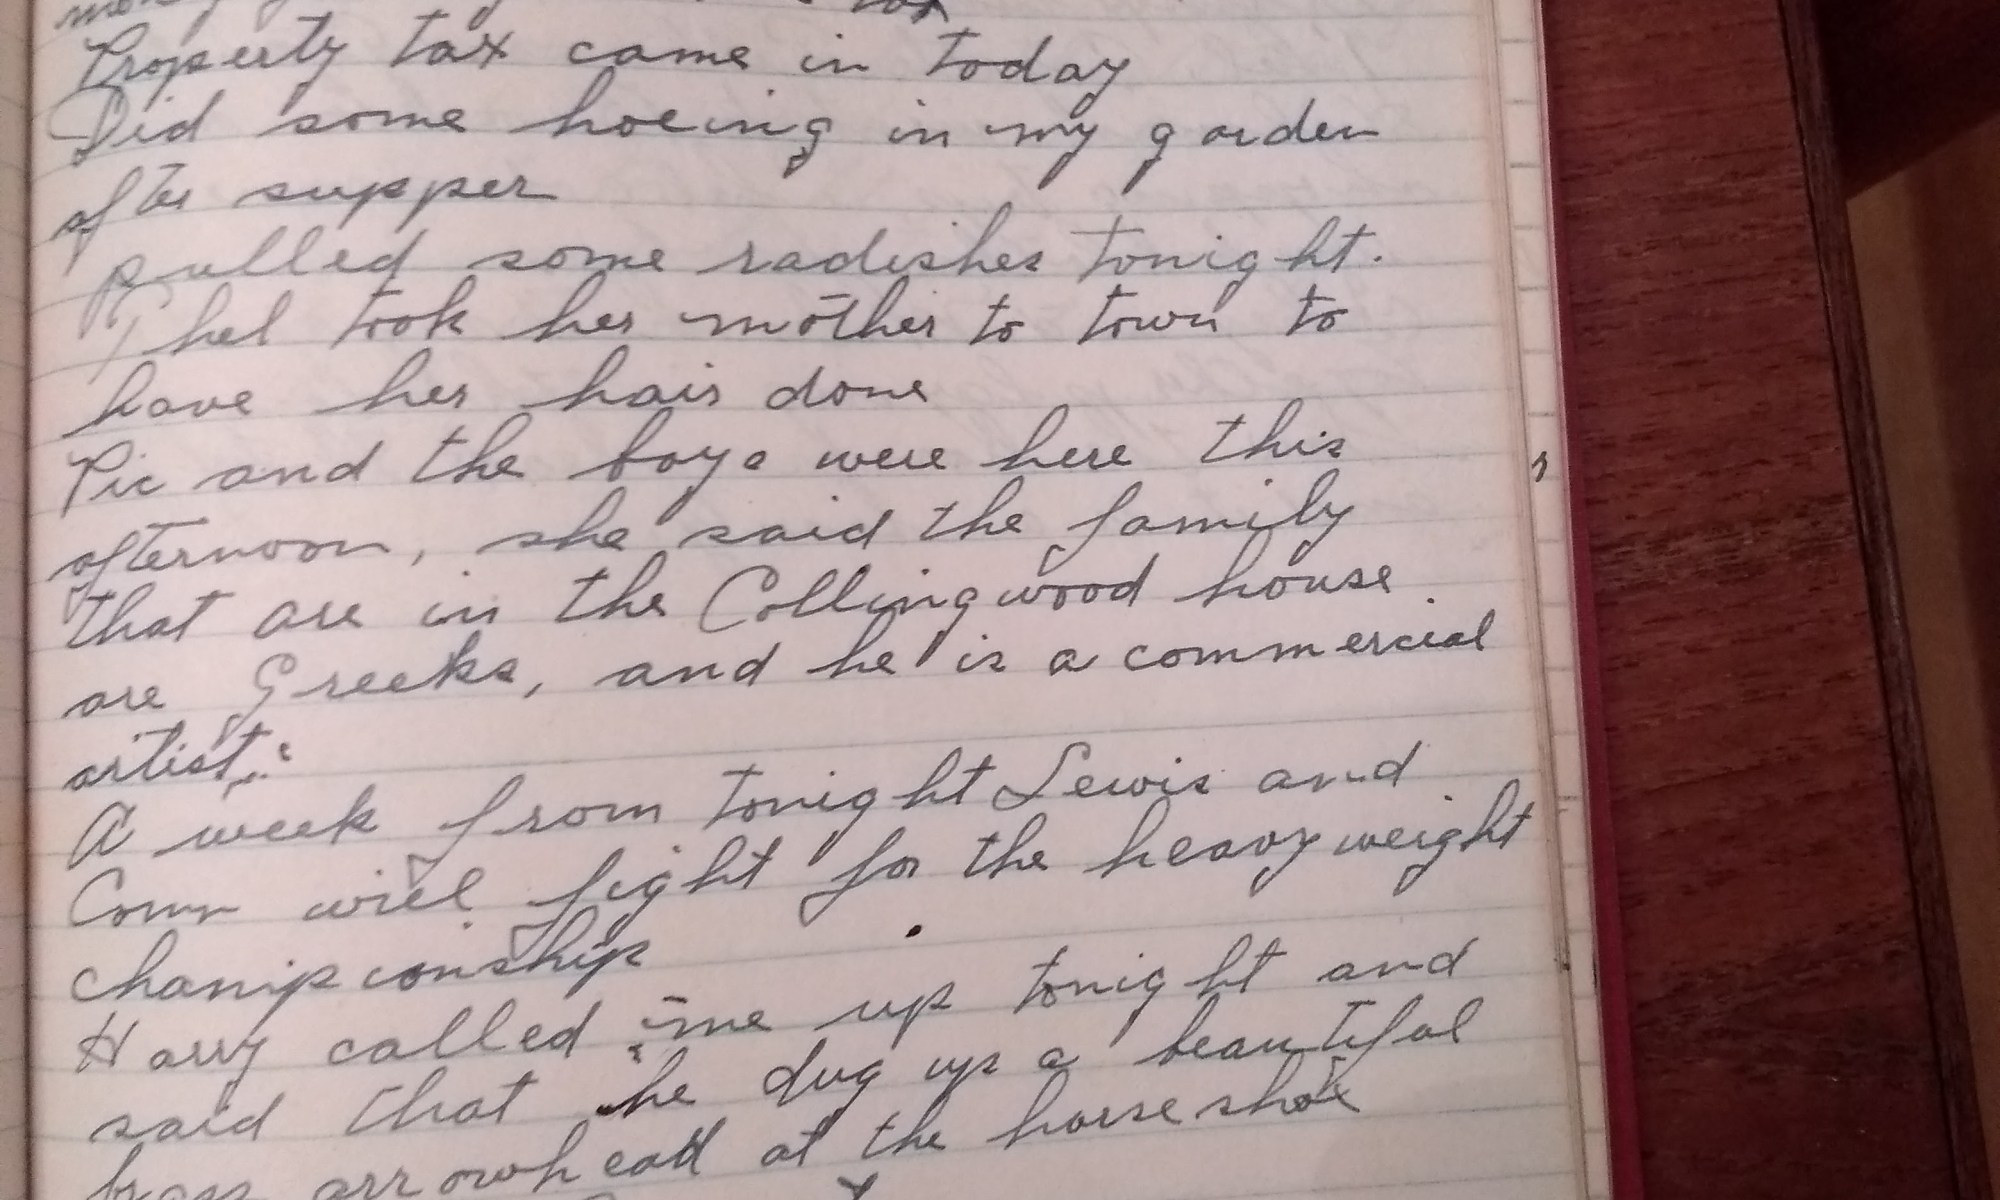 Property tax came in today
Did some hoeing in my garden
after supper
pulled some radishes tonight.
Thel took her mother to town to
have her hair done
Pic and the boys were here this
afternoon, she said the family
that are in the Collingwood house
are Greeks, and he is a commercial
artist.
A week from tonight Lewis and
Conn will fight for the heavy weight
championship
Harry called me up tonight and
said that he dug up a beautiful
brass arrowhead at the horseshoe